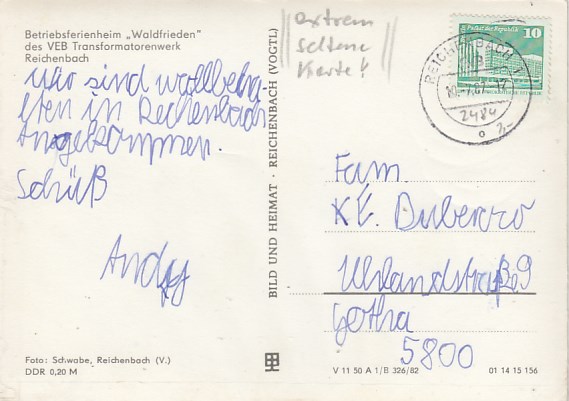 Betriebsferienheim „Waldfrieden"
des VEB Transformatorenwerk
Reichenbach
wir sind wollbeha-
lten in Reichenbach
Angekommen.
Schüß
Andy
Foto: Schwabe, Reichenbach (V.)
DDR 0,20 M
BILD UND HEIMAT · REICHENBACH (VOGTL)
extrem
seltene
Karte!
Palast der Republik 10
REICHENBACH 1
2484
2,-
Fam.
Uhlandstraße 9
Gotha
5800
V 11 50 A 1/B 326/82
01 14 15 156